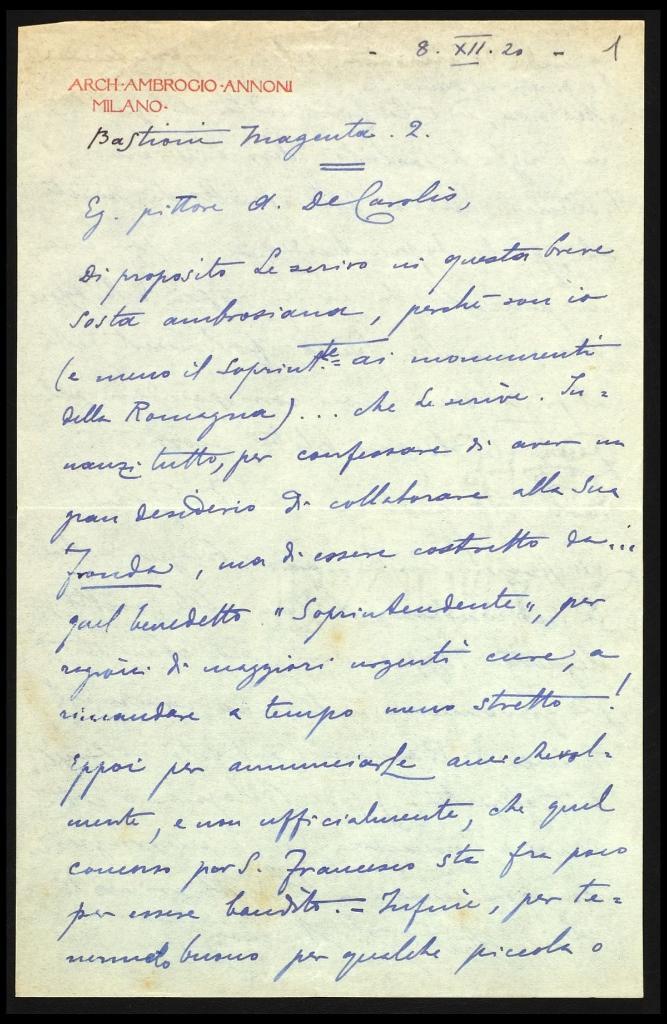 - 8. XII. 20 - 1
ARCH·AMBROGIO·ANNONI
MILANO·
Bastioni Magenta. 2.
Eg. pittore A. De Carolis,
Di proposito Le scrivo in questa breve
sosta ambrosiana, perché son io
(e meno il Soprint.te ai monumenti
della Romagna)... che Le scrive. In=
nanzi tutto, per confessare di aver un
gran desiderio di collaborare alla Sua
Fronda, ma di essere costretto da...
quel benedetto "Soprintendente", per
ragioni di maggiori urgenti cure, a
rimandare a tempo meno stretto!
Eppoi per annunciarLe amichevol-
mente, e non ufficialmente, che quel
concorso per S. Francesco sta fra poco
per essere bandito. = Infine, per te=
nermelo buono per qualche piccola o